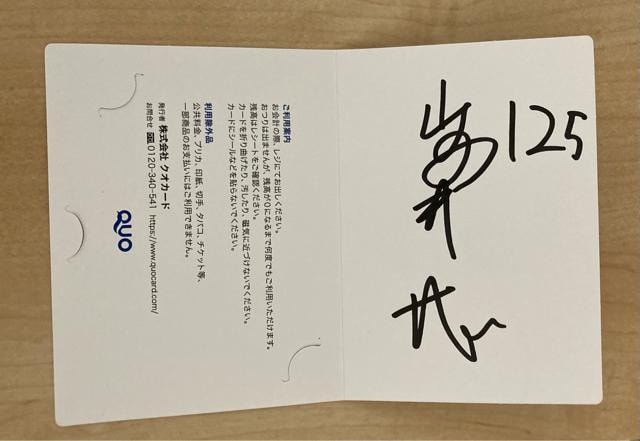 125
ご利用案内
お会計の際、レジにてお出しください。
おつりは出ませんが、残高が0になるまで何度でもご利用いただけます。
残高はレシートをご確認ください。
カードを折り曲げたり、汚したり、磁気に近づけないでください。
カードにシールなどを貼らないでください。
利用除外品
公共料金、プリカ、印紙、切手、タバコ、チケット等、
一部商品のお支払いにはご利用できません。
発行者 株式会社 クオカード
お問合せ 0120-340-541 https://www.quocard.com/
QUO